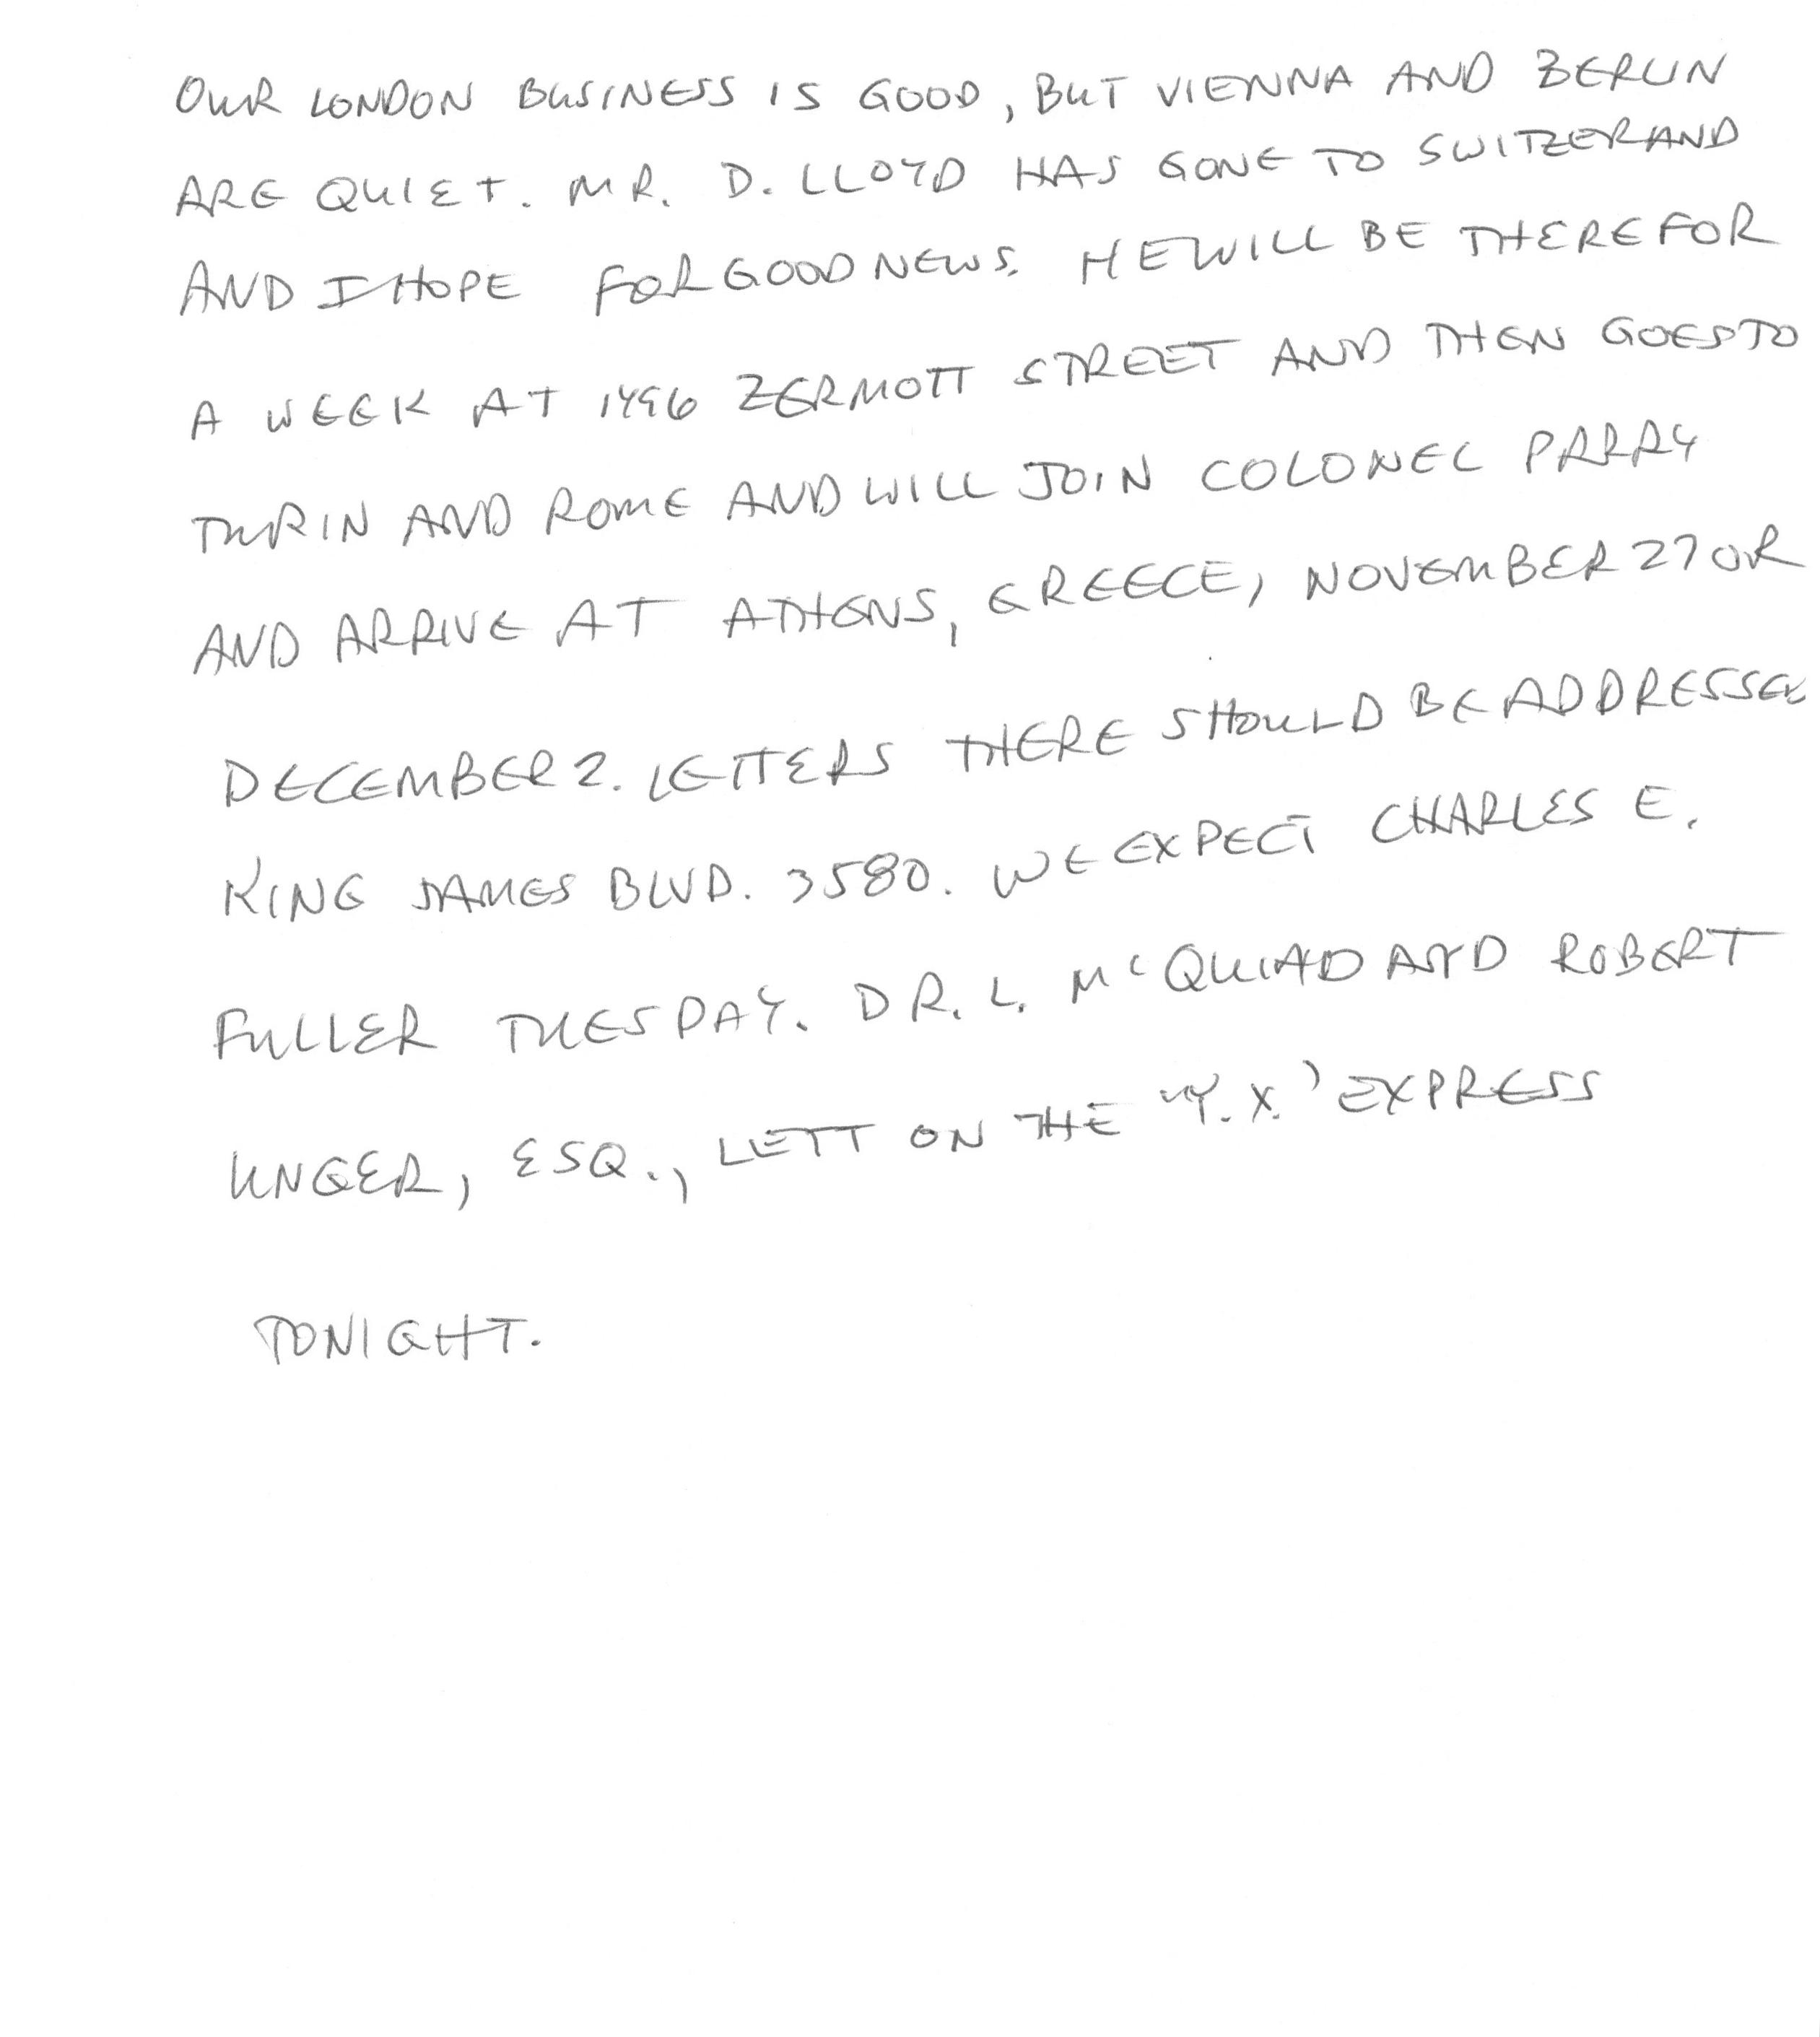 OUR LONDON BUSINESS IS GOOD, BUT VIENNA AND BERLIN
ARE QUIET. MR. D. LLOYD HAS GONE TO SWITZERAND
AND I HOPE FOR GOOD NEWS. HE WILL BE THERE FOR
A WEEK AT 1496 ZERMOTT STREET AND THEN GOES TO
TURIN AND ROME AND WILL JOIN COLONEL PARRY
AND ARRIVE AT ATHENS, GREECE, NOVEMBER 27 OR
DECEMBER 2. LETTERS THERE SHOULD BE ADDRESSED
KING JAMES BLVD. 3580. WE EXPECT CHARLES E.
FULLER TUESDAY. DR. L. MCQUIAD AND ROBERT
UNGER, ESQ., LETT ON THE "Y.X.' EXPRESS
TONIGHT.